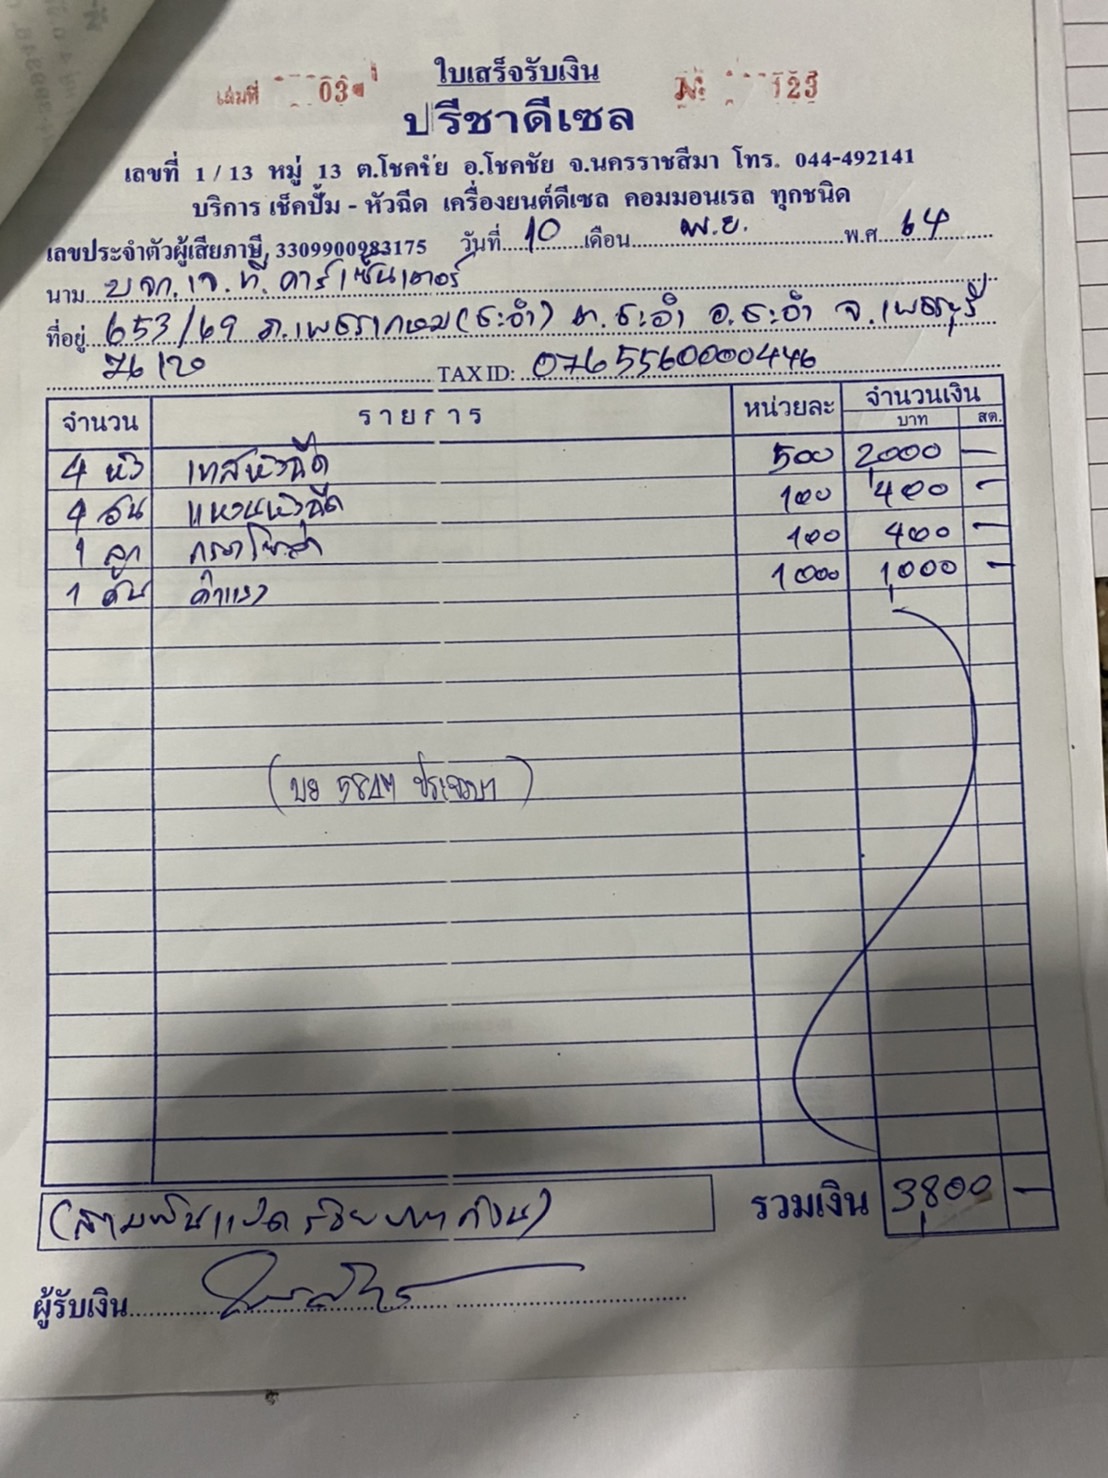 ใบเสร็จรับเงิน
เล่มที่ 03 № 123
ปรีชาดีเซล
เลขที่ 1/13 หมู่ 13 ต.โชคชัย อ.โชคชัย จ.นครราชสีมา โทร. 044-492141
บริการ เช็คปั้ม - หัวฉีด เครื่องยนต์ดีเซล คอมมอนเรล ทุกชนิด
เลขประจำตัวผู้เสียภาษี 3309900983175 วันที่ 10 เดือน พ.ย. พ.ศ 64
นาม บจก.เจ.ที.คาร์เซ็นเตอร์
ที่อยู่ 653/69 ถ.เพชรเกษม(ชะอำ) ต.ชะอำ อ.ชะอำ จ.เพชรบุรี
76120 TAX ID: 0765560000446
จำนวน รายการ หน่วยละ จำนวนเงิน
บาท สต.
4 หัว เทสหัวฉีด 500 2,000 -
4 อัน แหวนหัวฉีด 100 400 -
1 ลูก 100 400 -
1 คัน ค่าแรง 1000 1,000 -
(สามพันแปดร้อยบาทถ้วน) รวมเงิน 3,800 -
ผู้รับเงิน